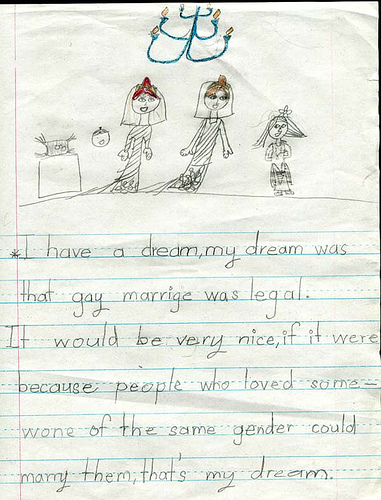 *I have a dream, my dream was
that gay marrige was legal.
It would be very nice, if it were
because people who loved some-
wone of the same gender could
marry them, that's my dream.